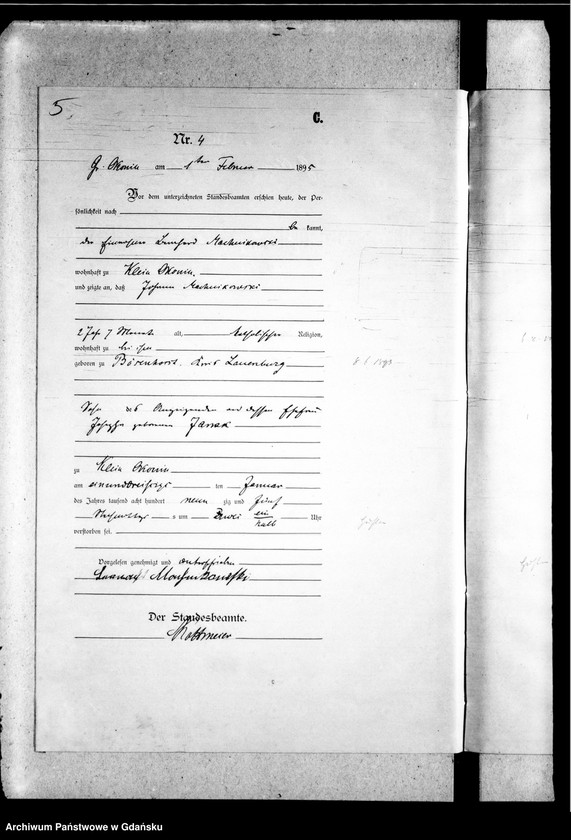 5.
C.
Nr. 4
Gr. Okonin am 1ten Februar 1895
Vor dem unterzeichneten Standesbeamten erschien heute, der Per-
sönlichkeit nach
be kannt,
der Einwohner Bernhard Machnikowski
wohnhaft zu Klein Okonin,
und zeigte an, daß Johann Machnikowski
2 Jahr 7 Monate alt, katholischer Religion,
wohnhaft zu bei ihm
geboren zu Börenhorst, Kreis Lauenburg
Sohn des Anzeigenden und dessen Ehefrau
geborenen
zu Klein Okonin
am einunddreißigs ten Januar
des Jahres tausend acht hundert neun zig und fünf
Nachmittags um zwei ein halb Uhr
verstorben sei.
Vorgelesen, genehmigt und unterschrieben
Der Standesbeamte.
Archiwum Państwowe w Gdańsku